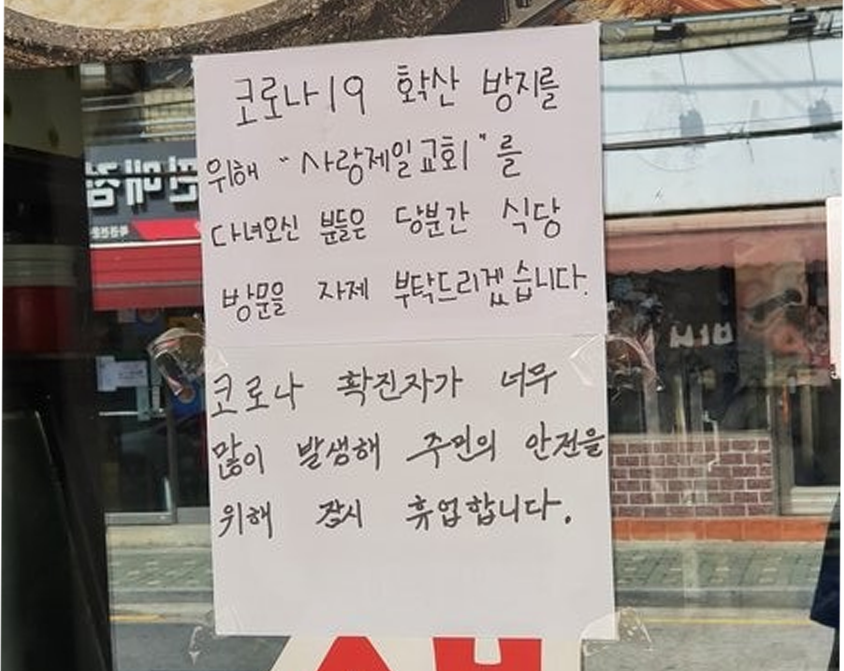 코로나19 확산 방지를
위해 "사랑제일교회"를
다녀오신 분들은 당분간 식당
방문을 자제 부탁드리겠습니다.
코로나 확진자가 너무
많이 발생해 주민의 안전을
위해 잠시 휴업합니다.